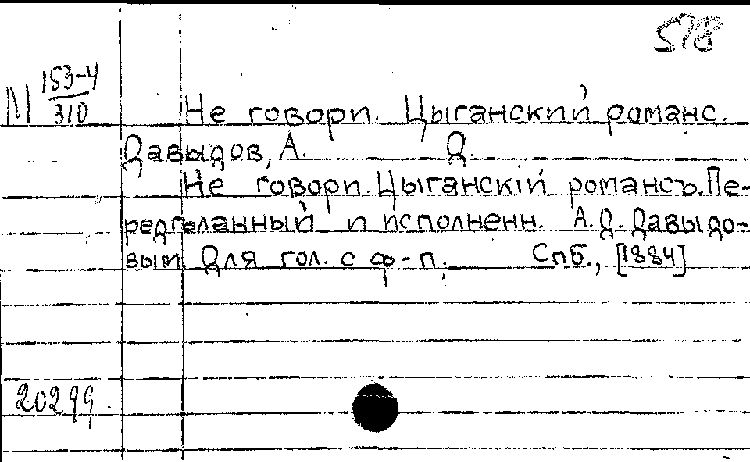 578
М 153-4
310
Не говори. Цыганский романс.
Давыдов, А. Д.
Не говори. Цыганскій романсъ. Пе-
редѣланный и исполненн. А. Д. Давыдо-
вым. Для гол. с ф-п. Спб., [1884]
20299.